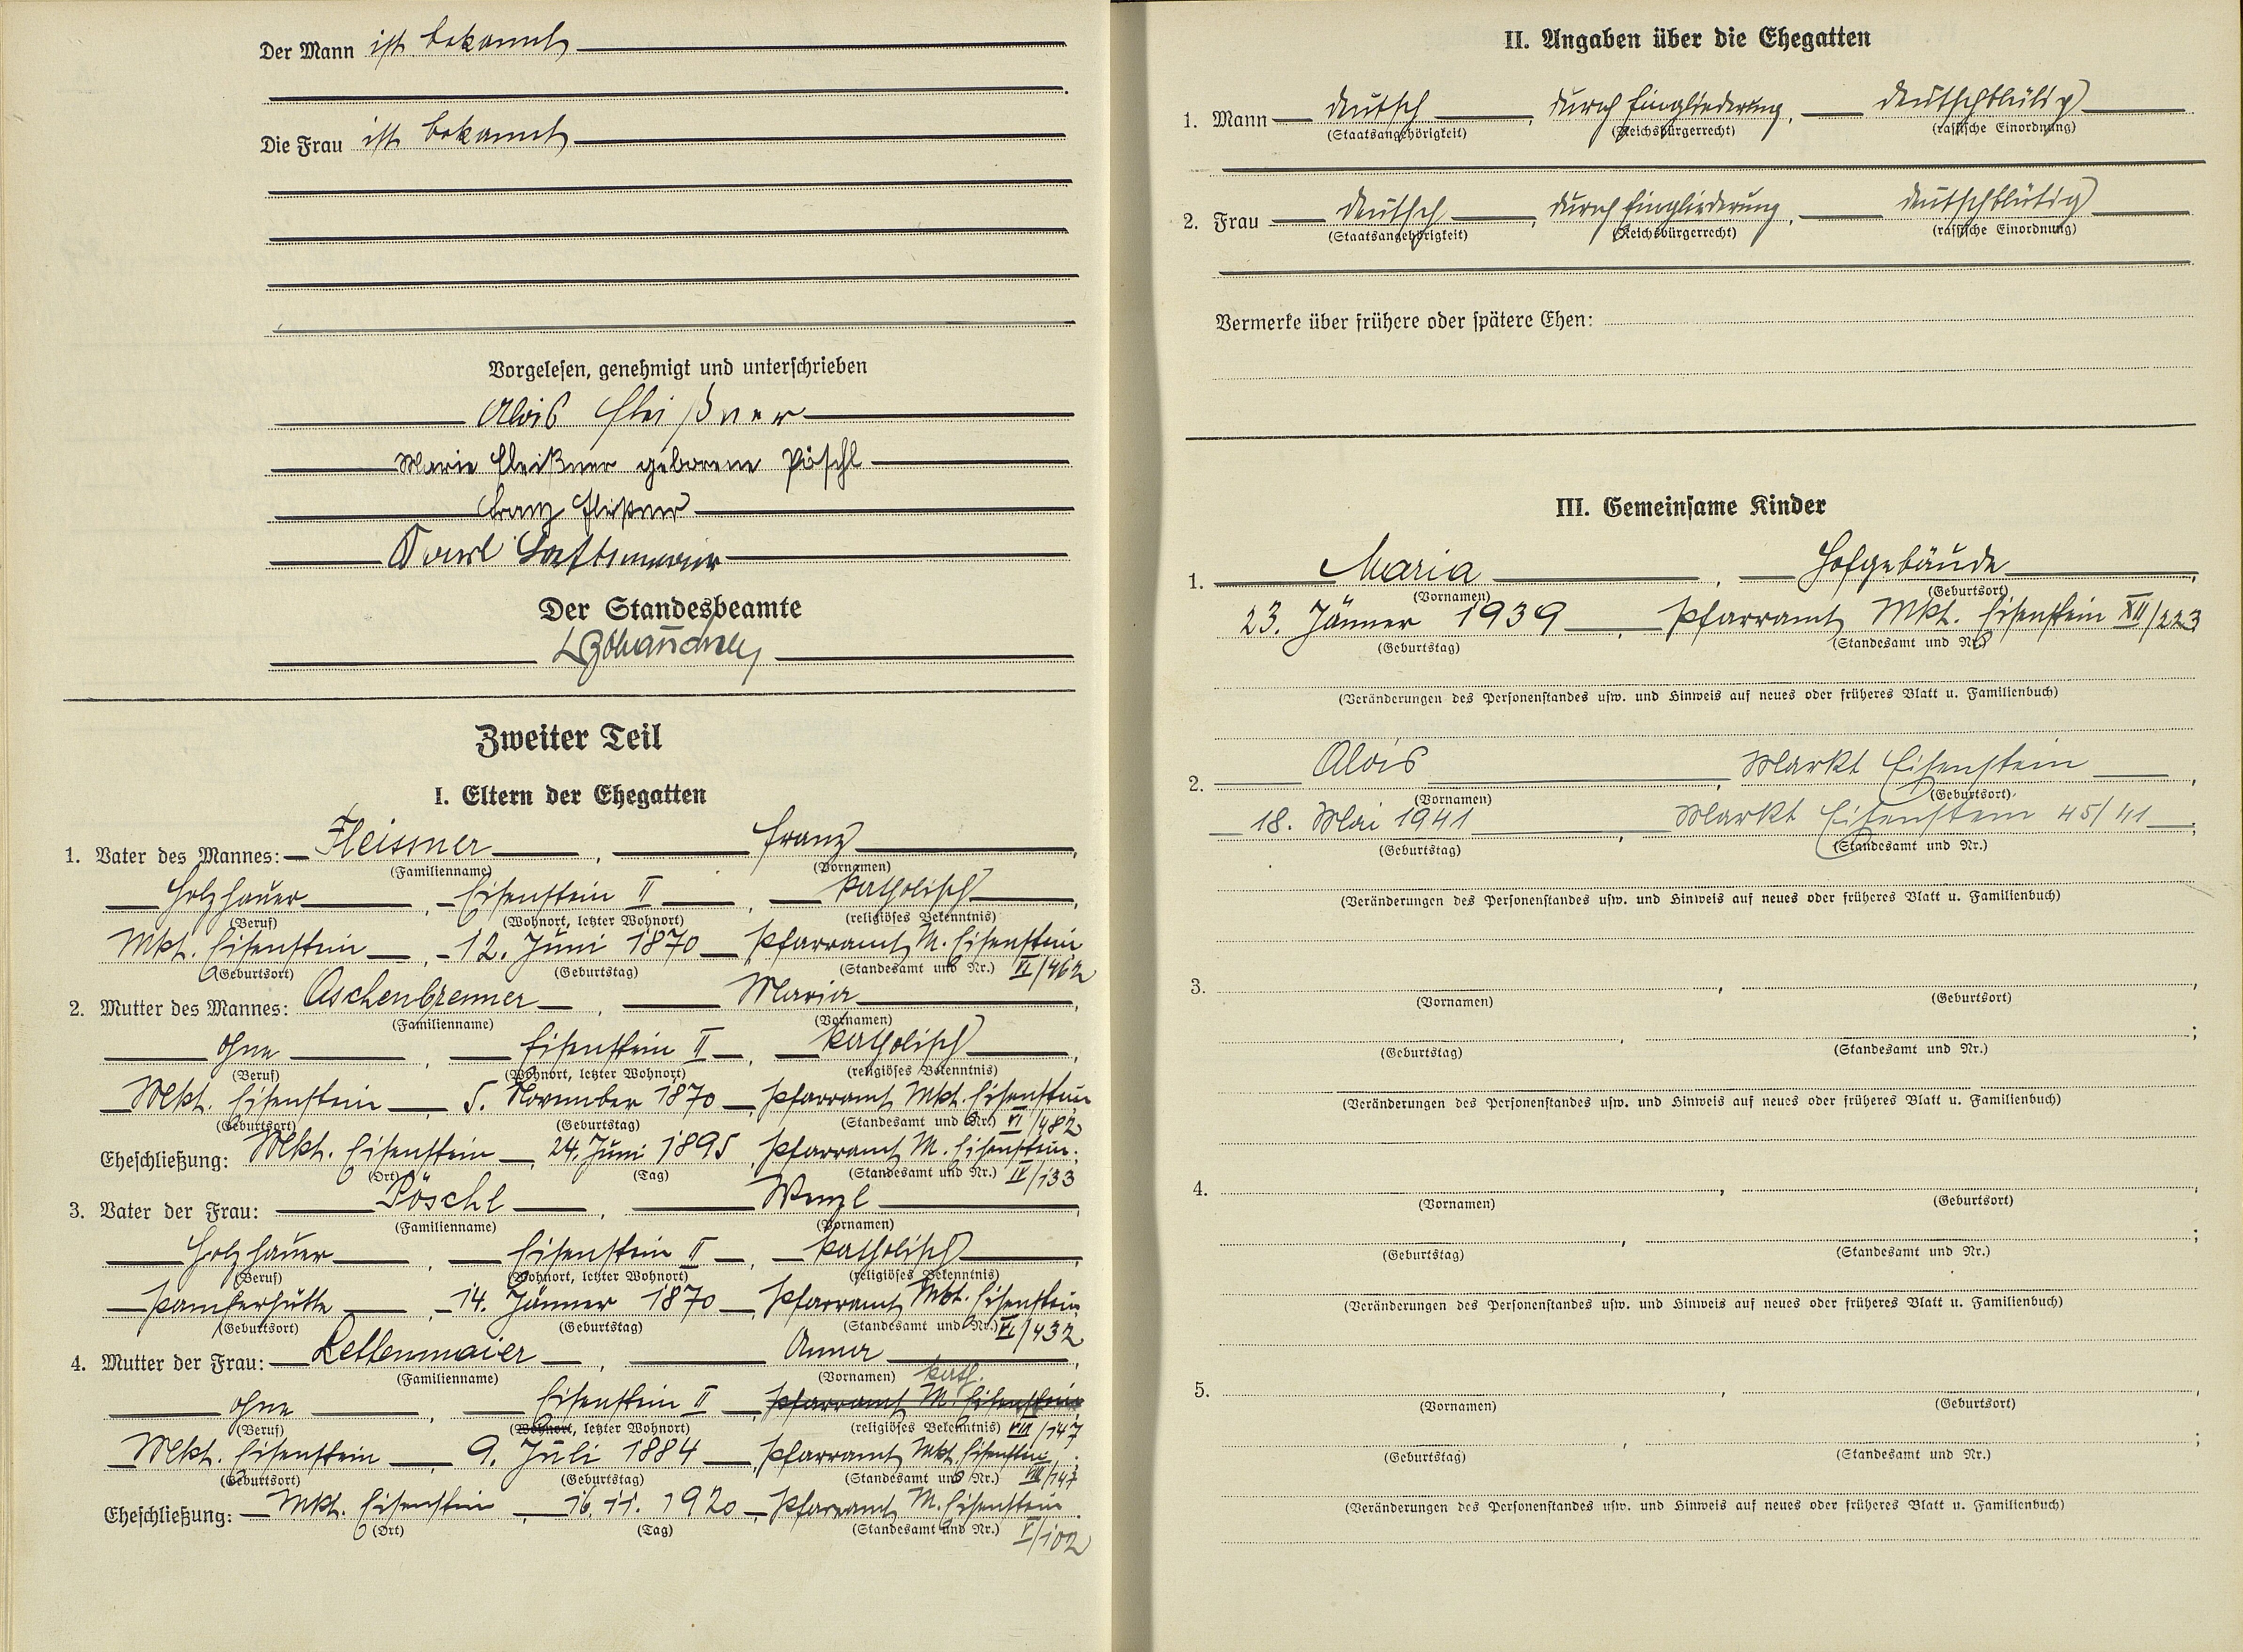 Der Mann ist bekannt
Die Frau ist bekannt
Vorgelesen, genehmigt und unterschrieben
Alois Fleißner
Marie Fleißner geborene Pöschl
Franz Fleißner
Karl
Der Standesbeamte
Zweiter Teil
I. Eltern der Ehegatten
1. Vater des Mannes: Fleissner, Franz,
(Familienname) (Vornamen)
Holzhauer, Eisenstein II, katholisch,
(Beruf) (Wohnort, letzter Wohnort) (religiöses Bekenntnis)
Mkt. Eisenstein, 12. Juni 1870 Pfarramt M. Eisenstein
(Geburtsort) (Geburtstag) (Standesamt und Nr.) VI/462
2. Mutter des Mannes: Aschenbrenner, Maria,
(Familienname) (Vornamen)
ohne, Eisenstein II, katholisch,
(Beruf) (Wohnort, letzter Wohnort) (religiöses Bekenntnis)
Mkt. Eisenstein, 5. November 1870, Pfarramt Mkt. Eisenstein
(Geburtsort) (Geburtstag) (Standesamt und Nr.) VI/482
Eheschließung: Mkt. Eisenstein, 24. Juni 1895, Pfarramt M. Eisenstein.
(Ort) (Tag) (Standesamt und Nr.) IV/133
3. Vater der Frau: Pöschl, Wenzl,
(Familienname) (Vornamen)
Holzhauer, Eisenstein II, katholisch,
(Beruf) (Wohnort, letzter Wohnort) (religiöses Bekenntnis)
Pamferhütte, 14. Jänner 1870, Pfarramt Mkt. Eisenstein
(Geburtsort) (Geburtstag) (Standesamt und Nr.) VI/432
4. Mutter der Frau: Lettenmaier, Anna,
(Familienname) (Vornamen) kath.
ohne, Eisenstein II, Pfarramt M. Eisenstein
(Beruf) (Wohnort, letzter Wohnort) (religiöses Bekenntnis) VIII/147
Mkt. Eisenstein, 9. Juli 1884, Pfarramt Mkt. Eisenstein;
(Geburtsort) (Geburtstag) (Standesamt und Nr.) VIII/147
Eheschließung: Mkt. Eisenstein, 16. 11. 1920, Pfarramt M. Eisenstein.
(Ort) (Tag) (Standesamt und Nr.) V/102
II. Angaben über die Ehegatten
1. Mann deutsch, durch Eingliederung, deutschblütig
(Staatsangehörigkeit) (Reichsbürgerrecht) (rassische Einordnung)
2. Frau deutsch, durch Eingliederung, deutschblütig
(Staatsangehörigkeit) (Reichsbürgerrecht) (rassische Einordnung)
Vermerke über frühere oder spätere Ehen:
III. Gemeinsame Kinder
1. Maria, Hofgebäude,
(Vornamen) (Geburtsort)
23. Jänner 1939, Pfarramt Mkt. Eisenstein XII/223
(Geburtstag) (Standesamt und Nr.)
(Veränderungen des Personenstandes usw. und Hinweis auf neues oder früheres Blatt u. Familienbuch)
2. Alois, Markt Eisenstein,
(Vornamen) (Geburtsort)
18. Mai 1941, Markt Eisenstein 45/41;
(Geburtstag) (Standesamt und Nr.)
(Veränderungen des Personenstandes usw. und Hinweis auf neues oder früheres Blatt u. Familienbuch)
3. , ,
(Vornamen) (Geburtsort)
, ;
(Geburtstag) (Standesamt und Nr.)
(Veränderungen des Personenstandes usw. und Hinweis auf neues oder früheres Blatt u. Familienbuch)
4. , ,
(Vornamen) (Geburtsort)
, ;
(Geburtstag) (Standesamt und Nr.)
(Veränderungen des Personenstandes usw. und Hinweis auf neues oder früheres Blatt u. Familienbuch)
5. , ,
(Vornamen) (Geburtsort)
, ;
(Geburtstag) (Standesamt und Nr.)
(Veränderungen des Personenstandes usw. und Hinweis auf neues oder früheres Blatt u. Familienbuch)